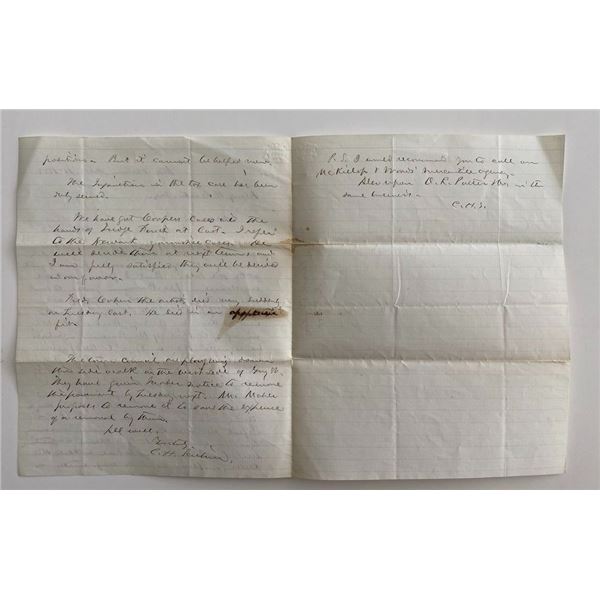 positions. But it cannot be helped now.
The Injunction in the top case has been
duly served.
We have got Coopers Cases into the
hands of Judge at last. I refer
to the cases. He
will decide them at next term and
I am fully satisfied they will be decided
in our favor.
the artist, died very suddenly
on Tuesday last. He died in an
fit.
The town Council are ploughing down
the side walk on the west side of
They have given notice to remove
the pavement by Tuesday next. Mr.
proposes to remove it to save the expense
of a removal by them.
All well.
Yours truly
C. H.
P.S. I would recommend you to call on
McKillop & Woods' mercantile agency.
Also upon O. R. Potter Also in the
same business.
C. H. S.